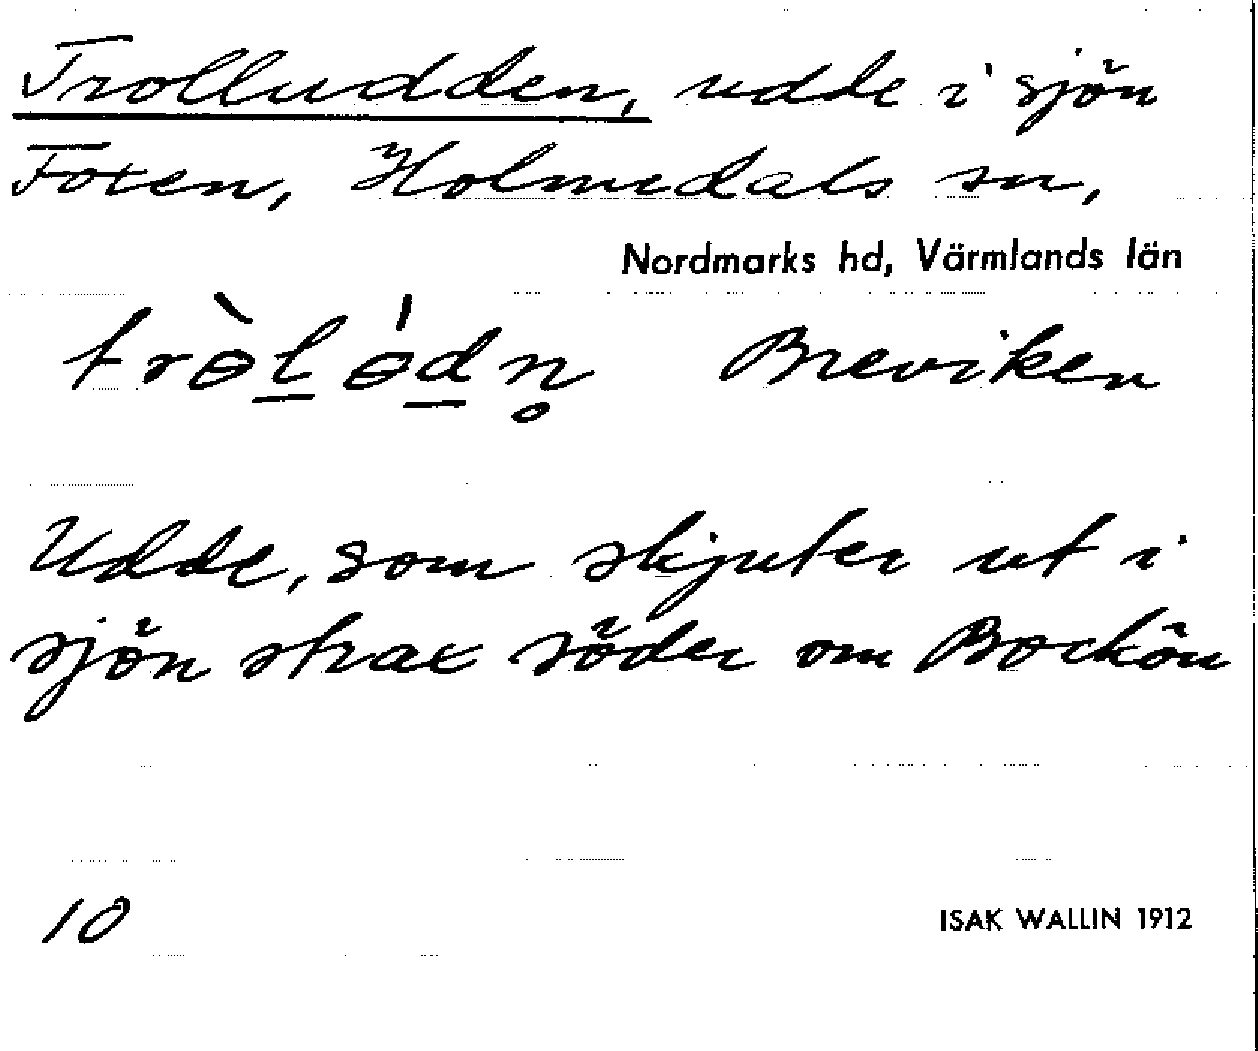 Trolludden, udde i sjön
Foxen, Holmedals sn,
Nordmarks hd, Värmlands län
trɵ̀l̲ɵ́d̲n̥ Breviken
Udde, som skjuter ut i
sjön strax söder om Bockön
10
ISAK WALLIN 1912